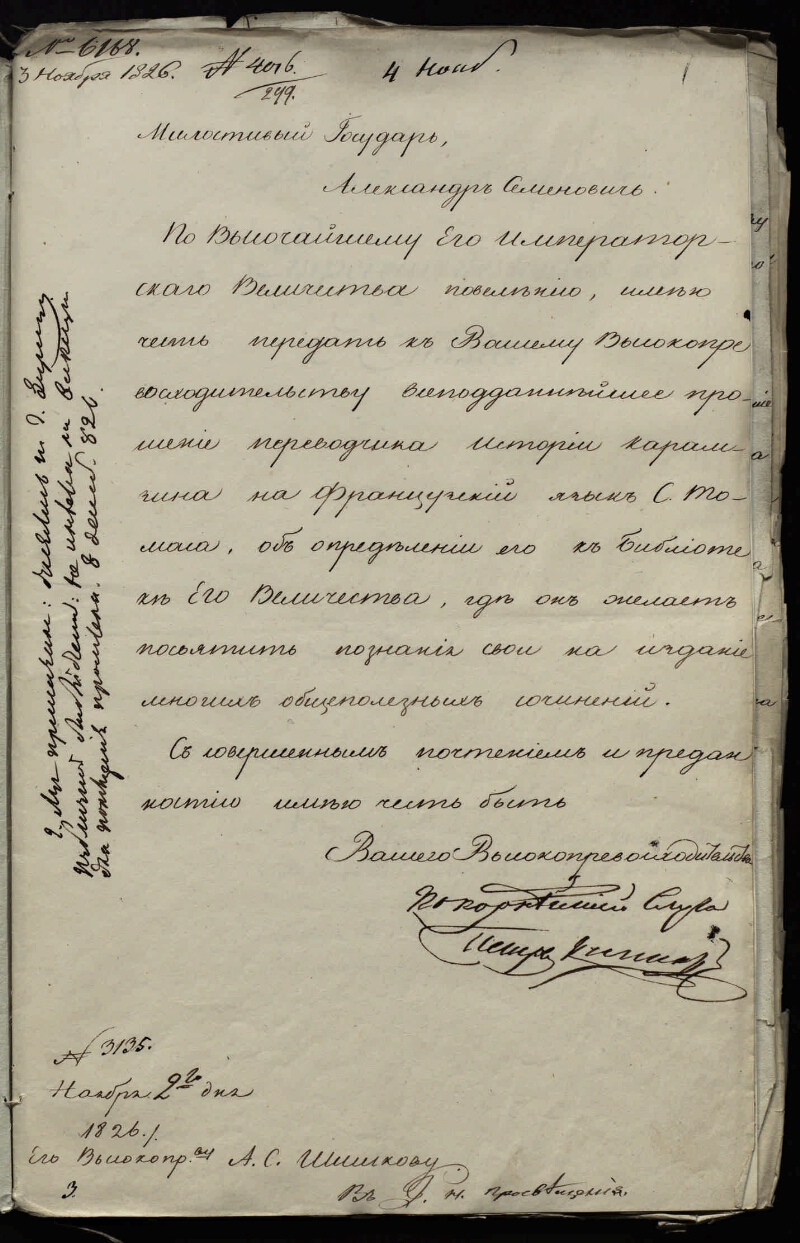 № 6168.
3 Ноября 1826.
№ 4076.
299.
4 Нояб.
1
Милостивый Государь,
Александръ Семеновичъ.
По Высочайшему Его Император-
скаго Величества повелѣнію, имѣю
честь передать къ Вашему Высокопре
восходительству всеподданнѣйшее про-
шеніе переводчика Исторіи Карам-
зина на Французскій языкъ С. То-
маса, объ опредѣленіи его къ Библіоте
кѣ Его Величества, гдѣ онъ желаетъ
посвятить познанія свои на изданіе
многихъ общеполезныхъ сочиненій.
Съ совершеннымъ почтеніемъ и предан
ностію имѣю честь быть
Вашего Высокопревосходительства
покорнѣйшій слуга
Петръ
8 декаб. 826.
№ 3135.
Ноября 2го дня
1826.
Его Высокопр.ву А. С. Шишкову.
3.
Въ Д. н. просвѣщенія.